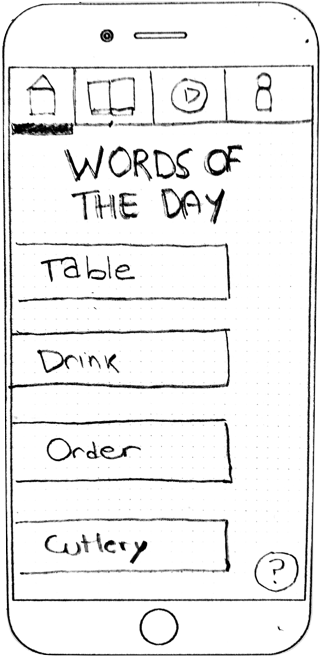 WORDS OF
THE DAY
Table
Drink
Order
Cutlery
?